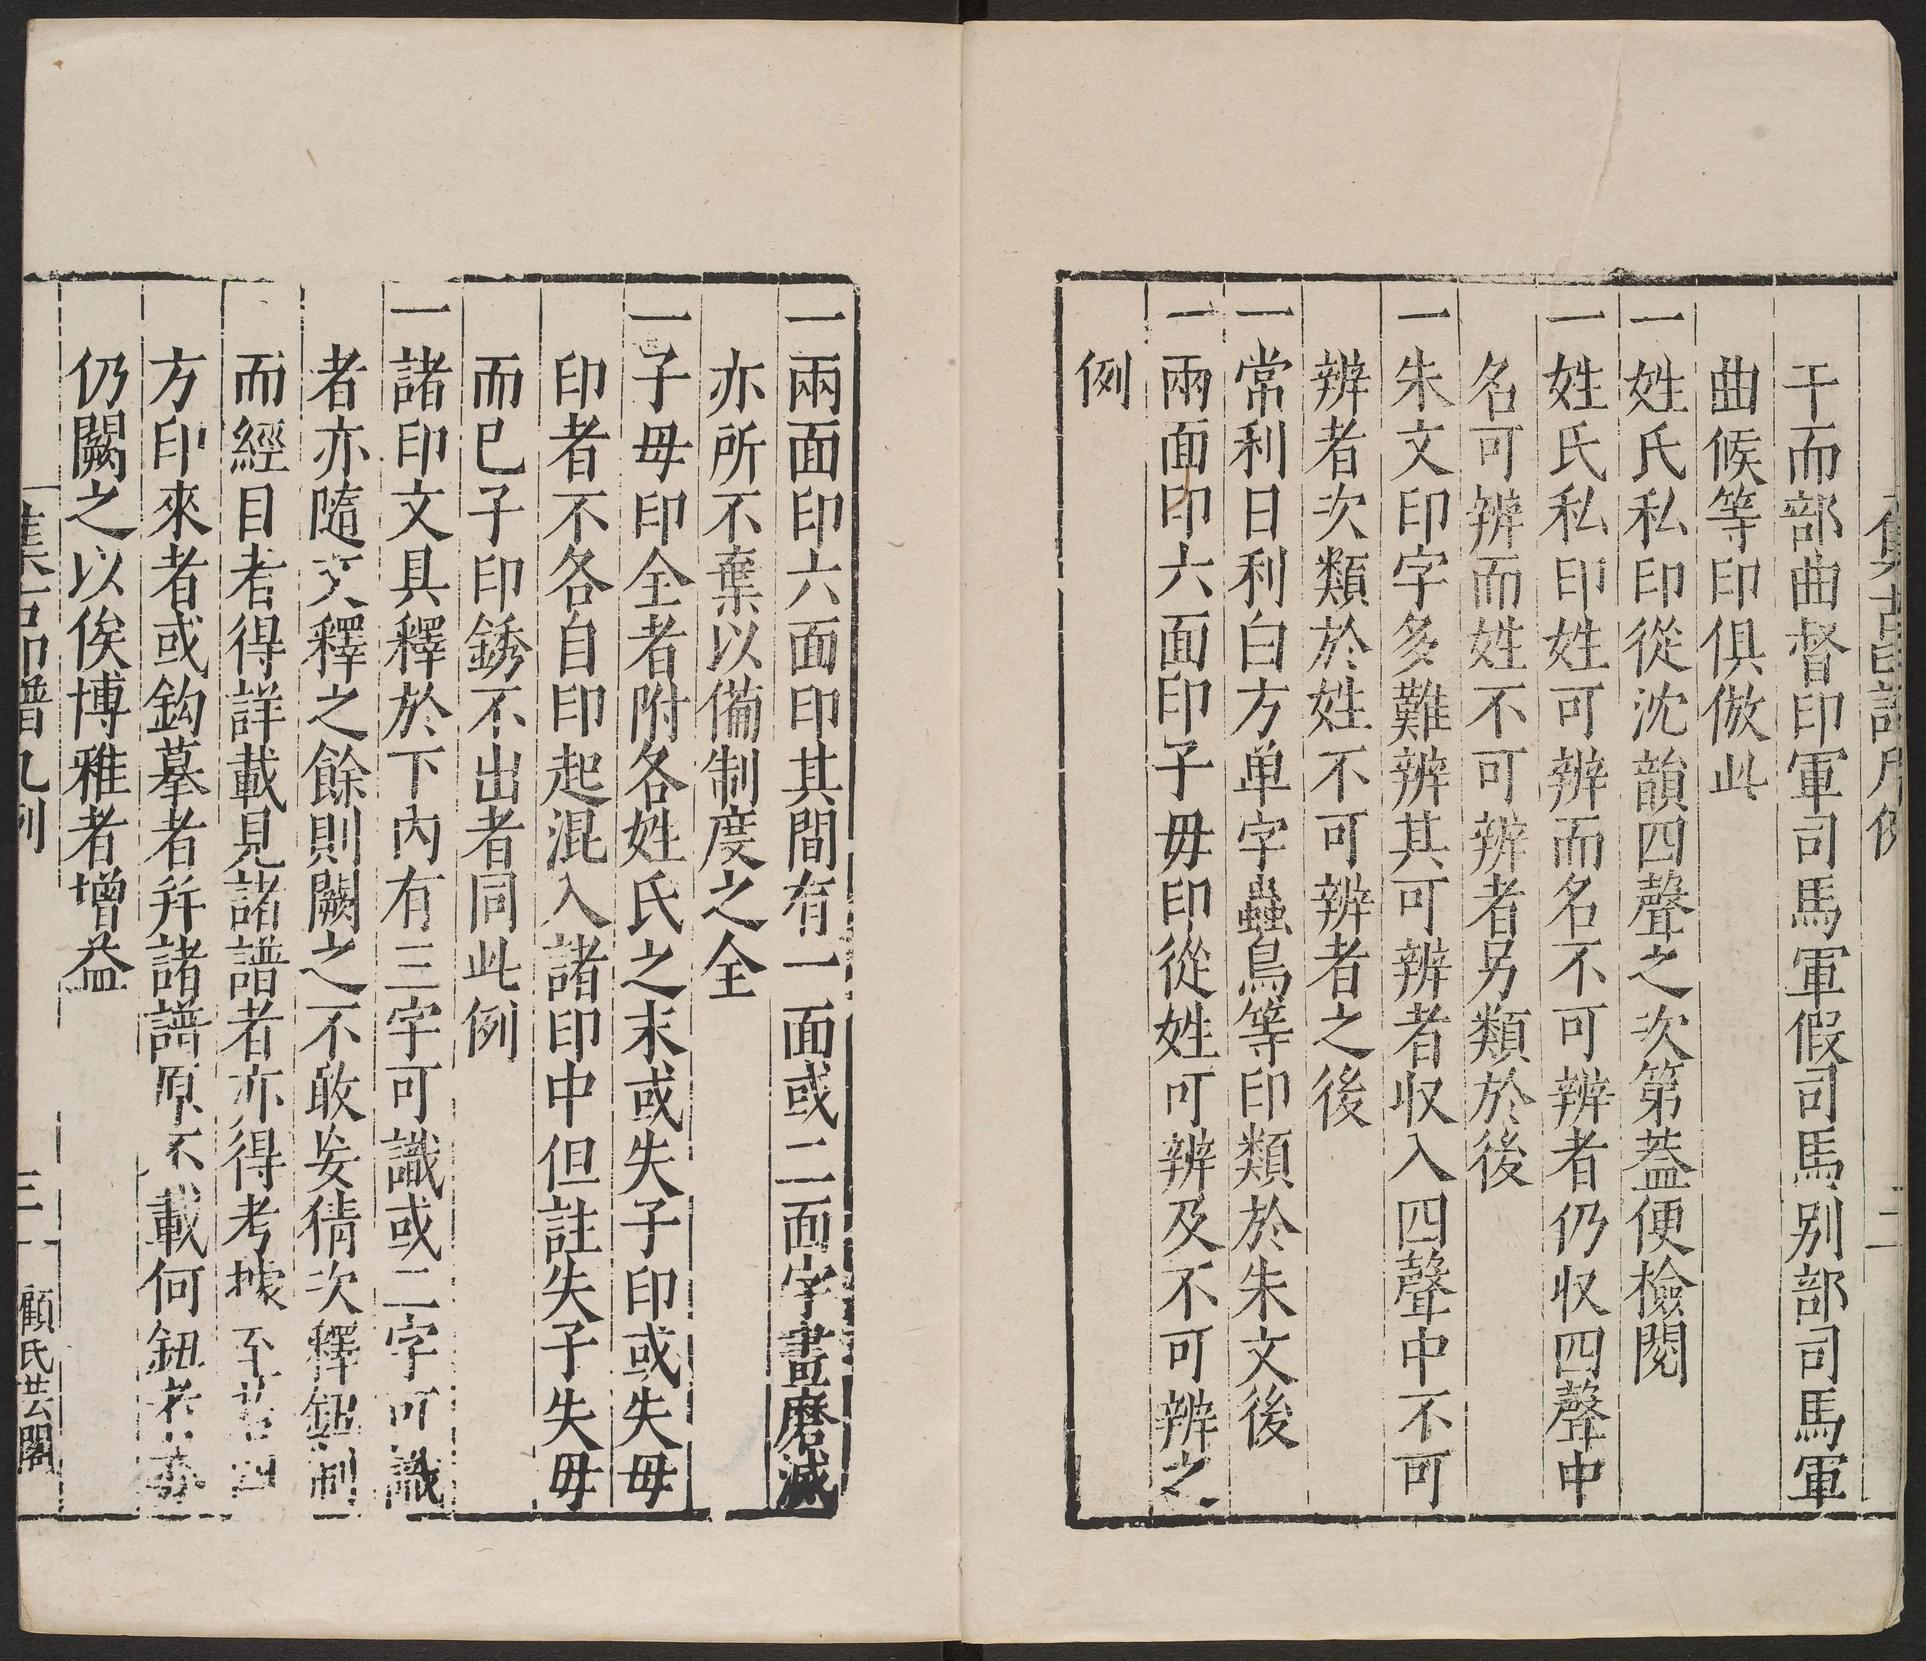 集古印譜凡例
二
干而部曲督印軍司馬軍假司馬別部司馬軍
曲候等印俱倣此
一姓氏私印從沈韻四聲之次第葢便檢閱
一姓氏私印姓可辨而名不可辨者仍収四聲中
名可辨而姓不可辨者另類於後
一朱文印字多難辨其可辨者収入四聲中不可
辨者次類於姓不可辨者之後
一常利日利白方単字蟲鳥等印類於朱文後
一兩面印六面印子毋印從姓可辨及不可辨之
例
一兩面印六面印其間有一面或二面字畫磨滅
亦所不棄以備制度之全
一子毋印全者附各姓氏之末或失子印或失毋
印者不各自印起混入諸印中但註失子失毋
而已子印銹不出者同此例
一諸印文具釋於下內有三字可識或二字可識
者亦隨文釋之餘則闕之不敢妄猜次釋鈕制
而經目者得詳載見諸譜者亦得考據至
方印來者或鈎摹者并諸譜原不載何鈕者
仍闕之以俟博雅者增益
集古印譜凡例
三
顧氏芸閣